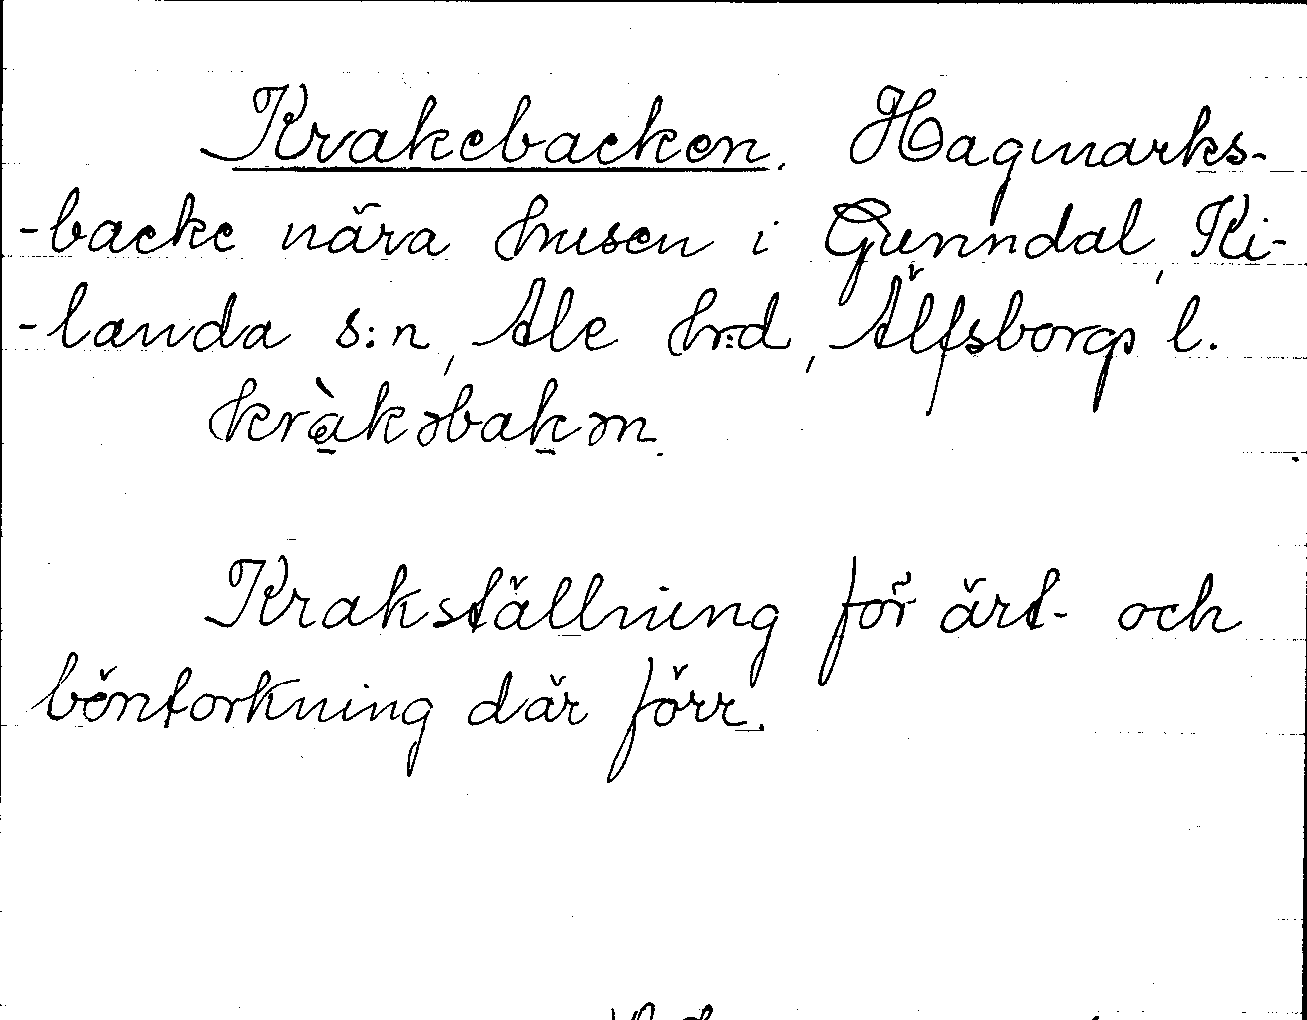 Krakebacken. Hagmarks-
-backe nära husen i Gunndal, Ki-
-landa s:n, Ale h:d, Älfsborgs l.
kràkəbakən.
Krakställning för ärt- och
böntorkning där förr.